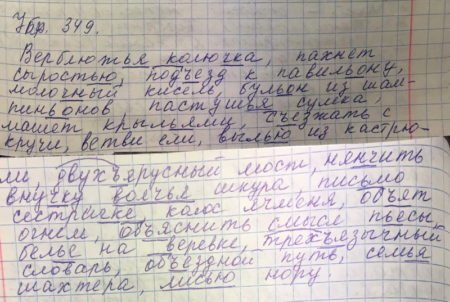 Упр. 349.
Верблюжья колючка, пахнет
сыростью, подъезд к павильону,
молочный кисель, бульон из шам-
пиньонов пастушья сумка,
машет крыльями, съезжать с
кручи, ветви ели, вылью из кастрю-
ли, двухъярусный мост, нянчить
внучку волчья шкура, письмо
сестричке, колос ячменя, объят
огнем, объяснить смысл пьесы,
белье на веревке, трехъязычный
словарь, объездной путь, семья
шахтера, лисью нору.